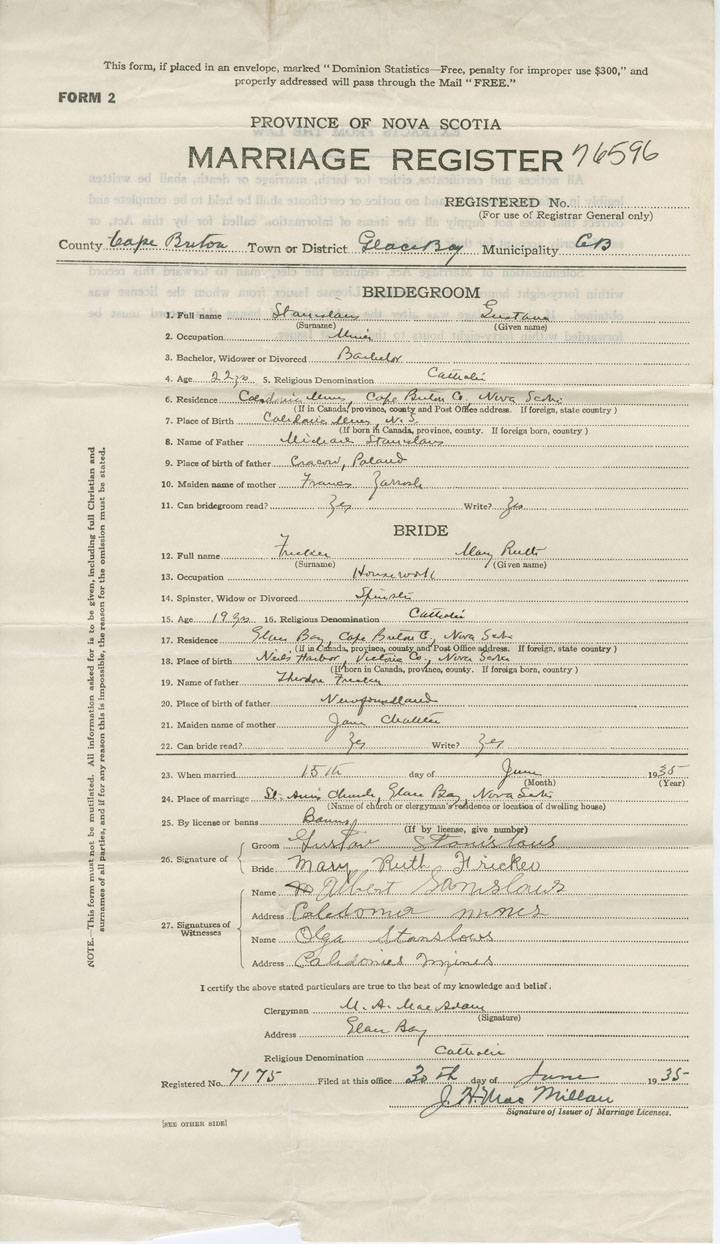 This form, if placed in an envelope, marked "Dominion Statistics—Free, penalty for improper use $300," and
properly addressed will pass through the Mail "FREE."
FORM 2
PROVINCE OF NOVA SCOTIA
MARRIAGE REGISTER 76596
REGISTERED No.
(For use of Registrar General only)
County Cape Breton Town or District Glace Bay Municipality CB
BRIDEGROOM
1. Full name Stanislaus Gustave
(Surname) (Given name)
2. Occupation Miner
3. Bachelor, Widower or Divorced Bachelor
4. Age 22 yrs 5. Religious Denomination Catholic
6. Residence Caledonia Mines, Cape Breton Co. Nova Scotia
(If in Canada, province, county and Post Office address. If foreign, state country)
7. Place of Birth Caledonia Mines, N.S.
(If born in Canada, province, county. If foreign born, country)
8. Name of Father Michael Stanislaus
9. Place of birth of father Cracow, Poland
10. Maiden name of mother Frances
11. Can bridegroom read? Yes Write? Yes
BRIDE
12. Full name Fricker Mary Ruth
(Surname) (Given name)
13. Occupation Housework
14. Spinster, Widow or Divorced Spinster
15. Age 19 yrs 16. Religious Denomination Catholic
17. Residence Glace Bay, Cape Breton C, Nova Scotia
(If in Canada, province, county and Post Office address. If foreign, state country)
18. Place of birth Neil's Harbor, Victoria Co., Nova Scotia
(If born in Canada, province, county. If foreign born, country)
19. Name of father Theodore Fricker
20. Place of birth of father Newfoundland
21. Maiden name of mother Jane
22. Can bride read? Yes Write? Yes
23. When married 15th day of June 1935
(Month) (Year)
24. Place of marriage St. Ann's Church, Glace Bay, Nova Scotia
(Name of church or clergyman's residence or location of dwelling house)
25. By license or banns Banns
(If by license, give number)
26. Signature of Groom Gustav Stanislaus
Bride Mary Ruth Fricker
27. Signatures of Witnesses Name Albert Stanislaus
Address Caledonia mines
Name Olga Stanslows
Address Caledonies Mines
I certify the above stated particulars are true to the best of my knowledge and belief.
Clergyman M. A. MacAdam
(Signature)
Address Glace Bay
Religious Denomination Catholic
Registered No. 7175 Filed at this office 20th day of June 1935
J. H. MacMillan
Signature of Issuer of Marriage Licenses.
[SEE OTHER SIDE]
NOTE.—This form must not be mutilated. All information asked for is to be given, including full Christian and
surnames of all parties, and if for any reason this is impossible, the reason for the omission must be stated.